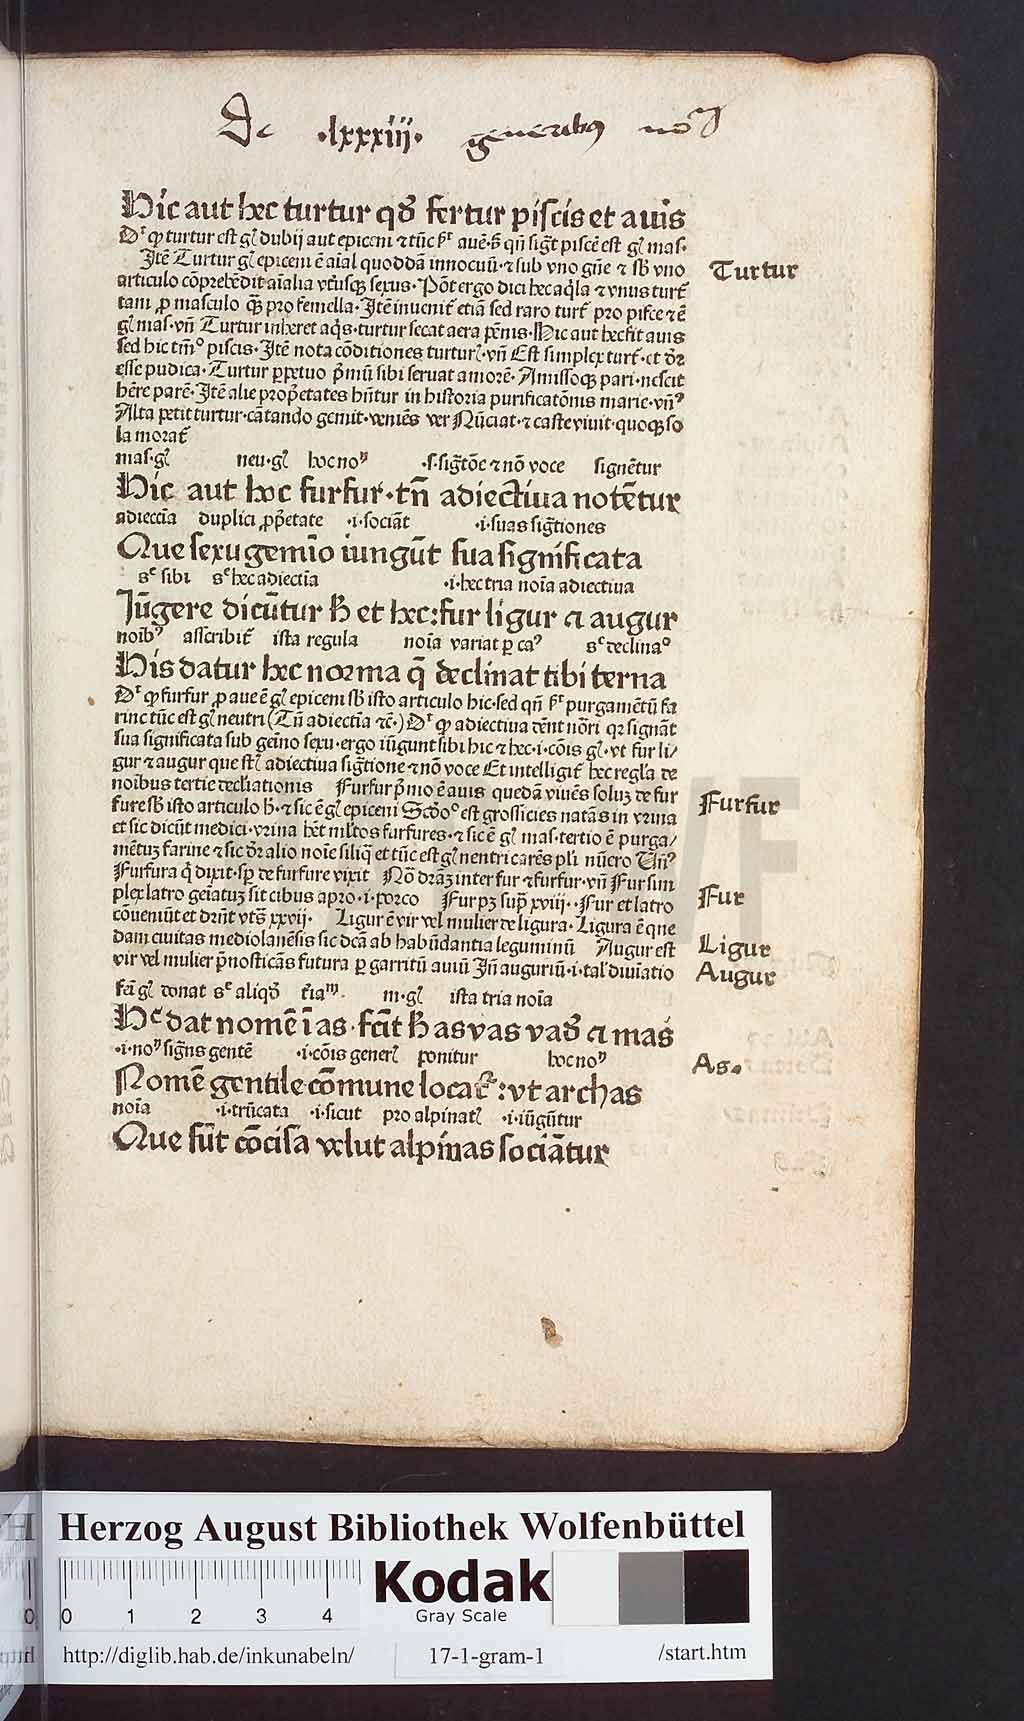 De .lxxxiij. generibus no
Hic aut hec turtur qď fertur piscis et auis
Dʳ ꝙ turtur est gl̄ dubij aut epiceni ⁊ tūc ſʳ auē.ſ̄ qn̄ sigt̄ piscē est gl̄ mas.
Itē Turtur gl̄ epiceni ē aīal quoddā innocuū.⁊ sub vno gn̄e ⁊ sb̄ vno
Turtur
articulo cōprehēdit aīalia vtriusqꝫ sexus. Pōt ergo dici hec aq̄la ⁊ vnus turt̄
tam ꝓ masculo qꝫ̄ pro femella. Itē inuenit̄ etiā sed raro turt̄ pro pisce ⁊ ē
gl̄ mas. vn̄ Turtur inheret aq̄s. turtur secat aera pēnis. Hic aut hec fit auis
sed hic tm̄º piscis. Itē nota cōditiones turturl̄. vn̄ Est simplex turt̄. et dr̄
esse pudica. Turtur ꝑpetuo p̄mū sibi seruat amorē. Amissoqꝫ pari. nescit
hēre parē. Itē alie prop̄etates hn̄tur in historia purificatōnis marie. vn̄ꝰ
Alta petit turtur. cātando gemit. veniēs ver Nūciat. ⁊ caste viuit. quoqꝫ so
la morat̄
mas. gl̄ neu. gl̄ hoc noᵐ .s. sigt̄ōe ⁊ nō voce signētur
Hic aut hoc furfur. tn̄ adiectiua notētur
adiectīa duplici ꝓp̄etate .i. sociāt .i. suas sigt̄iones
Que sexu gemīo iungūt sua significata
sᶜ sibi sᶜ hec adiectīa .i. hec tria noīa adiectiua
Iūgere dicūtur h̄ et hec: fur ligur ⁊ augur
noībꝰ ascribit̄ ista regula noīa variat ꝑ caꝰ sᶜ declinaº
His datur hec norma q̄ declinat tibi terna
Dʳ ꝙ furfur ꝓ aue ē gl̄ epiceni sb̄ isto articulo hic. sed qn̄ ſʳ purgamētū fa
rine tūc est gl̄ neutri (Tn̄ adiectīa ⁊c̄.) Dʳ ꝙ adiectiua dēnt nōri qꝛ signāt
sua significata sub gēino sexu. ergo iūgunt sibi hic ⁊ hec. i. cōis gl̄. vt fur li/
gur ⁊ augur que st̄ adiectiua sigt̄ione ⁊ nō voce Et intelligit̄ hec regl̄a de
noībus tertie decliātionis Furfur p̄mo ē auis quedā viuēs soluꝫ de fur
fure sb̄ isto articulo h̄. ⁊ sic ē gl̄ epiceni Scd̄oº est grossicies natās in vrina
Furfur
et sic dicūt medici. vrina het ml̄tos furfures. ⁊ sic ē gl̄ mas. tertio ē purga/
mētuꝫ farine ⁊ sic dr̄ alio noīe siliq̄ et tūc est gl̄ neutri carēs pl̄i nūero Vn̄ꝰ
Furfura q̄ dixit. sp̄ de furfure vixit Nō dr̄aꝫ inter fur ⁊ furfur. vn̄ Fur sim
plex latro geīatuꝫ sit cibus apro. i. porco Fur pꝫ sup̄ xviii. . Fur et latro
Fur
cōueniūt et dr̄nt vtꝫ̄ xxvij. Ligur ē vir vel mulier de ligura. Ligura ē que
dam ciuitas mediolanēsis sic dcā ab habūdantia leguminū Augur est
Ligur
vir vel mulier p̄nosticās futura ꝑ garritū auiū Jn̄ auguriū. i. tal̄ diuīatio
Augur
fēi gl̄ donat sᶜ aliqď t̄iaᵐ. m. gl̄ ista tria noīa
Hᶜ dat nomē īas. fēit h̄ as vas vaď ⁊ mas
.i. noᵐ sigūs gentē .i. cōis generl̄ ponitur hoc noᵐ
As.
Nomē gentile cōmune locat̄: vt archas
noīa .i. trūcata .i. sicut pro alpinatl̄ .i. iūgūtur
Que sūt cōcisa velut alpinas sociātur
Herzog August Bibliothek Wolfenbüttel
0 1 2 3 4
Kodak
Gray Scale
http://diglib.hab.de/inkunabeln/ 17-1-gram-1 /start.htm